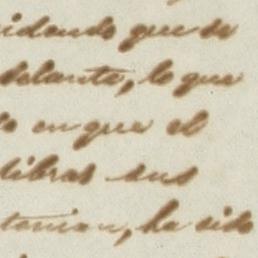 idando que se
delante, lo que
o en que el
libras sus
tenian, ha sido